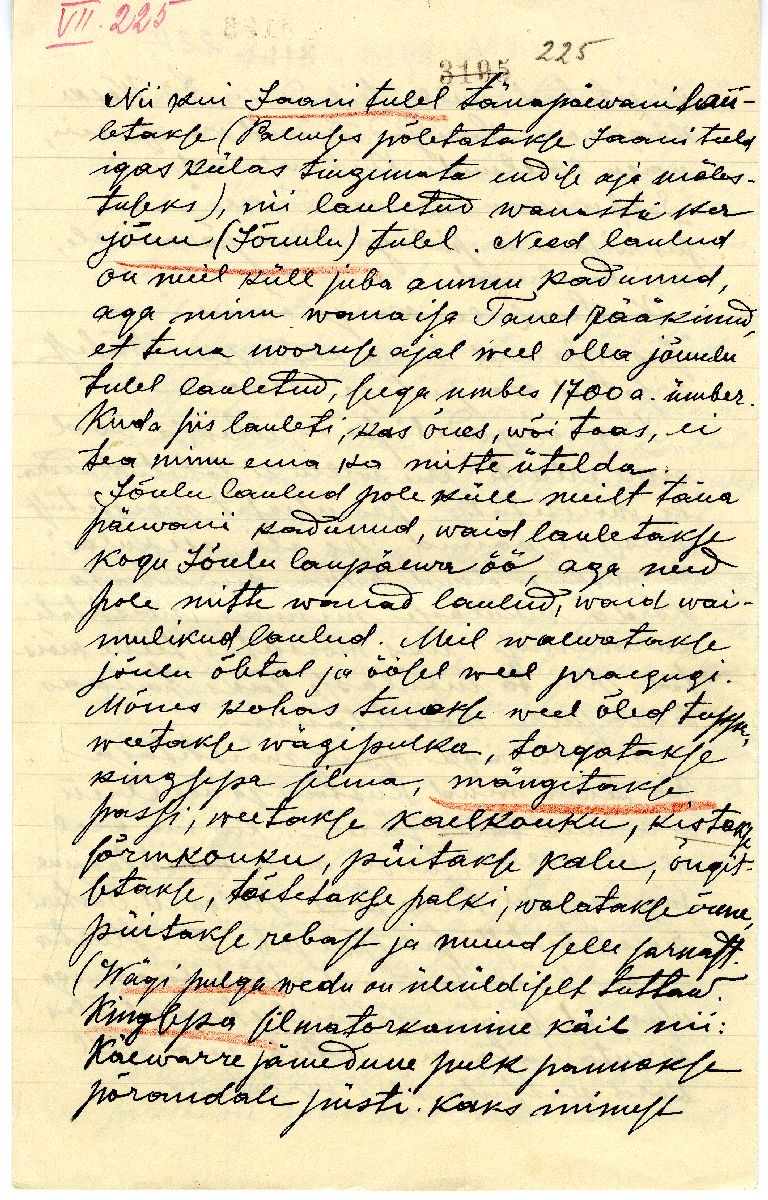 VII. 225
3195 225
Nii kui Jaani tulel tänapäewani lau-
letakse (Palmses põletatakse Jaani tuld
igas külas tingimata endise aja mäles-
tuseks), nii lauletud wanasti ka
jõuu (Jõuulu) tulel. Need laulud
on meil küll juba ammu kadunud,
aga minu wanaisa Tanel rääkinud,
et tema nooruse ajal weel olla jõuulu
tulel lauletud, seega umbes 1700 a. ümber.
Kuda siis lauleti, kas õues, wõi toas, ei
tea minu ema ka mitte ütelda.
Jõulu laulud pole küll meilt täna
päewanii kadunud, waid lauletakse
kogu Jõulu laupäewa öö, aga need
pole mitte wanad laulud, waid wai-
mulikud laulud. Meil walwatakse
jõulu õhtal ja öösel weel praegugi.
Mõnes kohas tuuakse weel õled tuppa,
weetakse wägipulka, torgatakse
kingsepa silma, mängitakse
passi, weetakse kaelkouku, kistakse
sõrmkouku, püitakse kalu, õngit-
letakse, tõstetakse palki, walatakse õnne,
püitakse rebast ja muud selle sarnast.
(Wägi pulga wedu on üleüldiselt tuttaw.
Kingsepa silmatorkamine käib nii:
Käewarre jämedune pulk pannakse
põrandale püsti. Kaks inimest